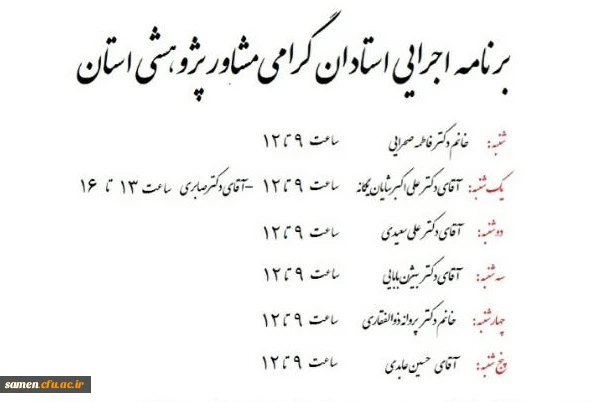 برنامه اجرایی استادان گرامی مشاور پژوهشی استان
شنبه: خانم دکتر فاطمه صحرایی ساعت ۹ تا ۱۲
یک شنبه: آقای دکتر علی اکبر شایان یگانه ساعت ۹ تا ۱۲ -آقای دکتر صابری ساعت ۱۳ تا ۱۶
دوشنبه: آقای دکتر علی سعیدی ساعت ۹ تا ۱۲
سه شنبه: آقای دکتر بیژن بابایی ساعت ۹ تا ۱۲
چهارشنبه: خانم دکتر پروانه ذوالفقاری ساعت ۹ تا ۱۲
پنج شنبه: آقای حسین عابدی ساعت ۹ تا ۱۲
samen.cfu.ac.ir